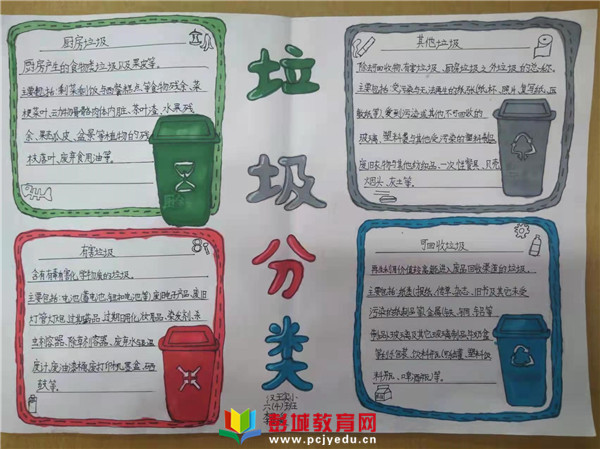 厨房垃圾
厨房产生的食物类垃圾以及果皮等。
主要包括：剩菜剩饭与西餐糕点等食物残余、菜
梗菜叶、动物骨骼内脏、茶叶渣、水果残
余、果壳瓜皮、盆景等植物的残
枝落叶、废弃食用油等。
其他垃圾
除可回收物、有害垃圾、厨房垃圾之外垃圾的总称。
主要包括：受污染与无法再生的纸张(纸杯、照片、复写纸、压
敏纸等)、受到污染或其他不可回收的
玻璃、塑料袋与其他受污染的塑料制品、
废旧衣物与其他纺织品、一次性餐具、贝壳、
烟头、灰土等。
垃圾分类
有害垃圾
含有有毒有害化学物质的垃圾。
主要包括：电池(蓄电池、纽扣电池等)、废旧电子产品、废旧
灯管灯泡、过期药品、过期日用化妆品、染发剂、杀
虫剂容器、除草剂容器、废弃水银温
度计、废油漆桶、废打印机墨盒、硒
鼓等。
可回收垃圾
再生利用价值较高，能进入废品回收渠道的垃圾。
主要包括：纸类(报纸、传单、杂志、旧书及其它未受
污染的纸制品等)、金属(铁、铜、铝等
制品)、玻璃及其它玻璃制品、牛奶盒
等)、
料瓶、啤酒瓶等)。
汉王实小
六(4)班
彭城教育网
www.pcjyedu.cn